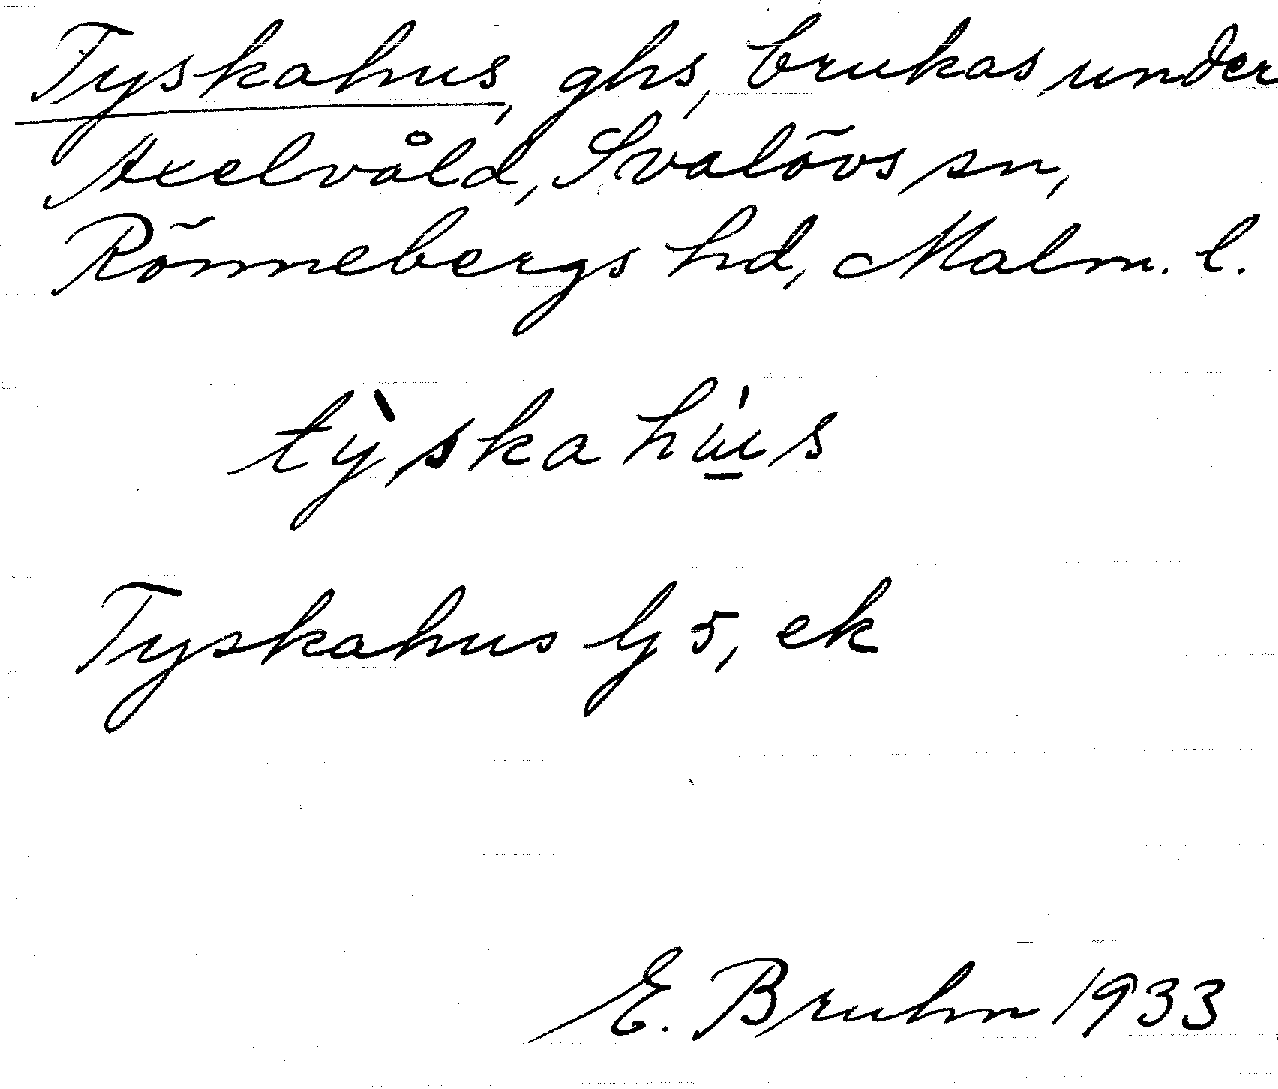 Tyskahus, ghs, brukas under
Axelvåld, Svalövs sn,
Rönnebergs hd, Malm. l.
tỳskahu̲s
Tyskahus Lj 5, ek
E. Bruhn 1933